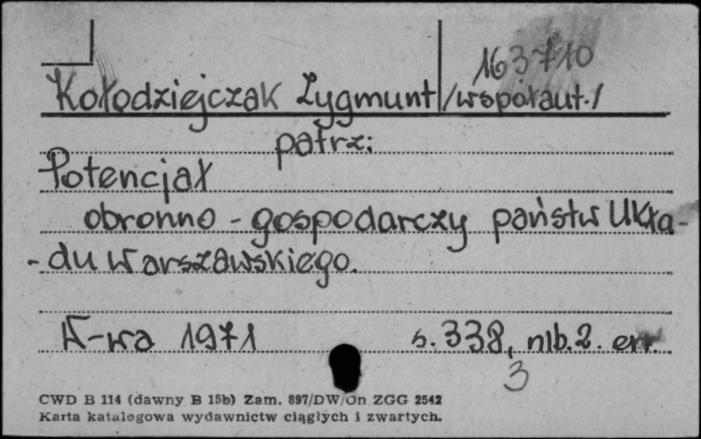 163710
Kołodziejczak Zygmunt /współaut./
patrz:
Potencjał
obronno - gospodarczy państw Ukła-
- du Warszawskiego.
W-wa 1971 s. 338, nlb. 2. err.
3
CWD B 114 (dawny B 15b) Zam. 897/DW/On ZGG 2542
Karta katalogowa wydawnictw ciągłych i zwartych.